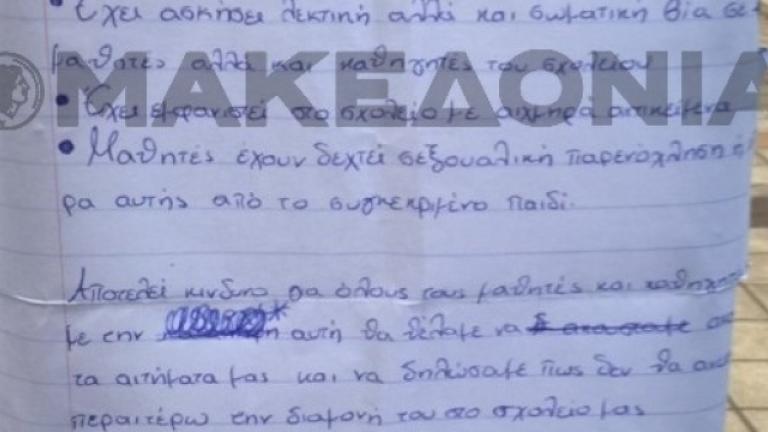 • Έχει ασκήσει λεκτική αλλά και σωματική βία σε
μαθητές αλλά και καθηγητές του σχολείου
ΜΑΚΕΔΟΝΙΑ
• Έχει εμφανιστεί στο σχολείο με αιχμηρά αντικείμενα
• Μαθητές έχουν δεχτεί σεξουαλική παρενόχληση
ρα αυτής από το συγκεκριμένο παιδί.
Αποτελεί κίνδυνο για όλους τους μαθητές και
με την * αυτή θα θέλαμε να
τα αιτήματα μας και να δηλώσουμε πως δεν θα
περαιτέρω την διαμονή του στο σχολείο μας